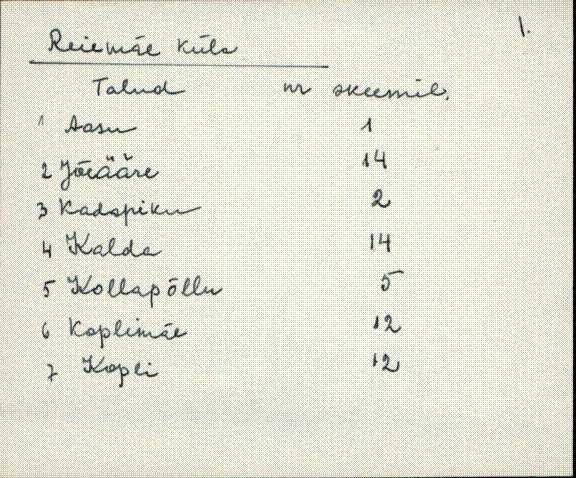 1.
Reiemäe küla
Talud nr skeemil.
1 Aasu 1
2 Jõeääre 14
3 Kadapiku 2
4 Kalda 14
5 Kollapõllu 5
6 Koplimäe 12
7 Kopli 12